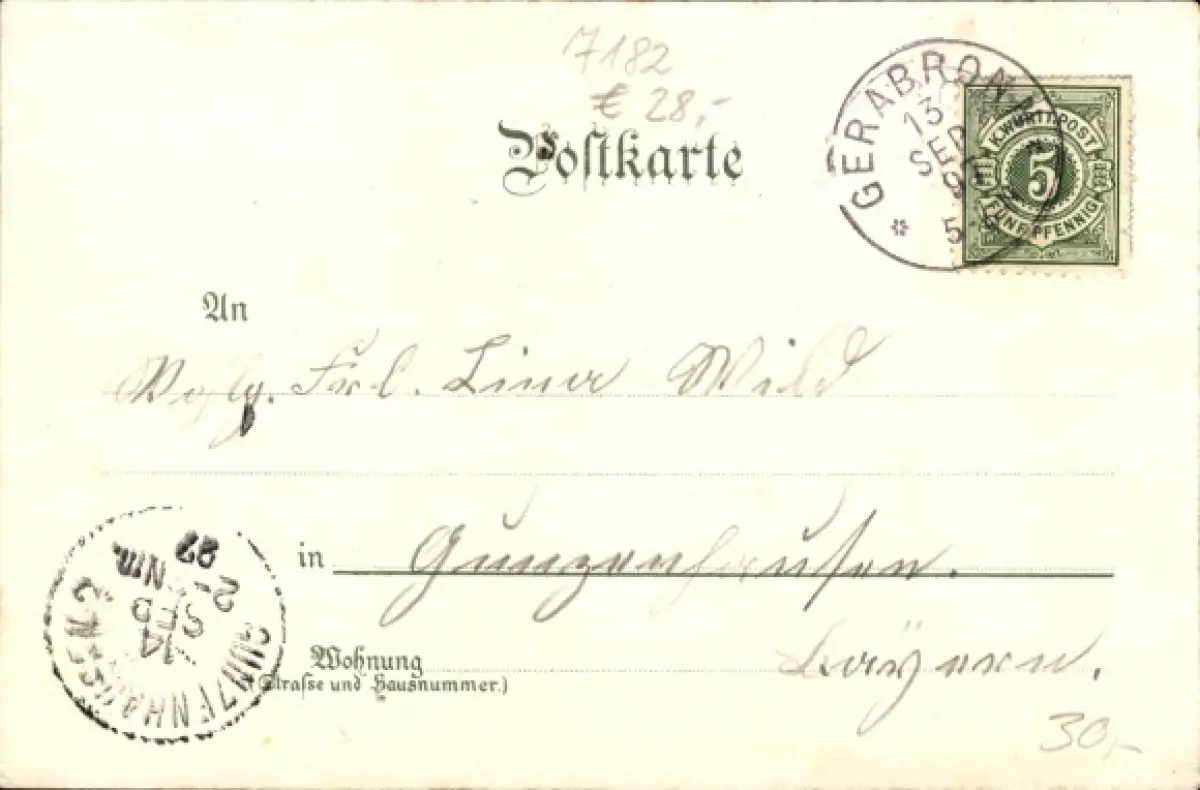 7182
€ 28,-
Postkarte
GERABRONN
13
SEP
5
K.WÜRTT.POST
5
FÜNF PFENNIG
An
Wohlg. Frl. Lina Wild
in Gunzenhausen.
Wohnung Bayern.
(Strasse und Hausnummer.)
GUNZENHAUSEN 2
14
SEP
2
Nm.
97
30,-